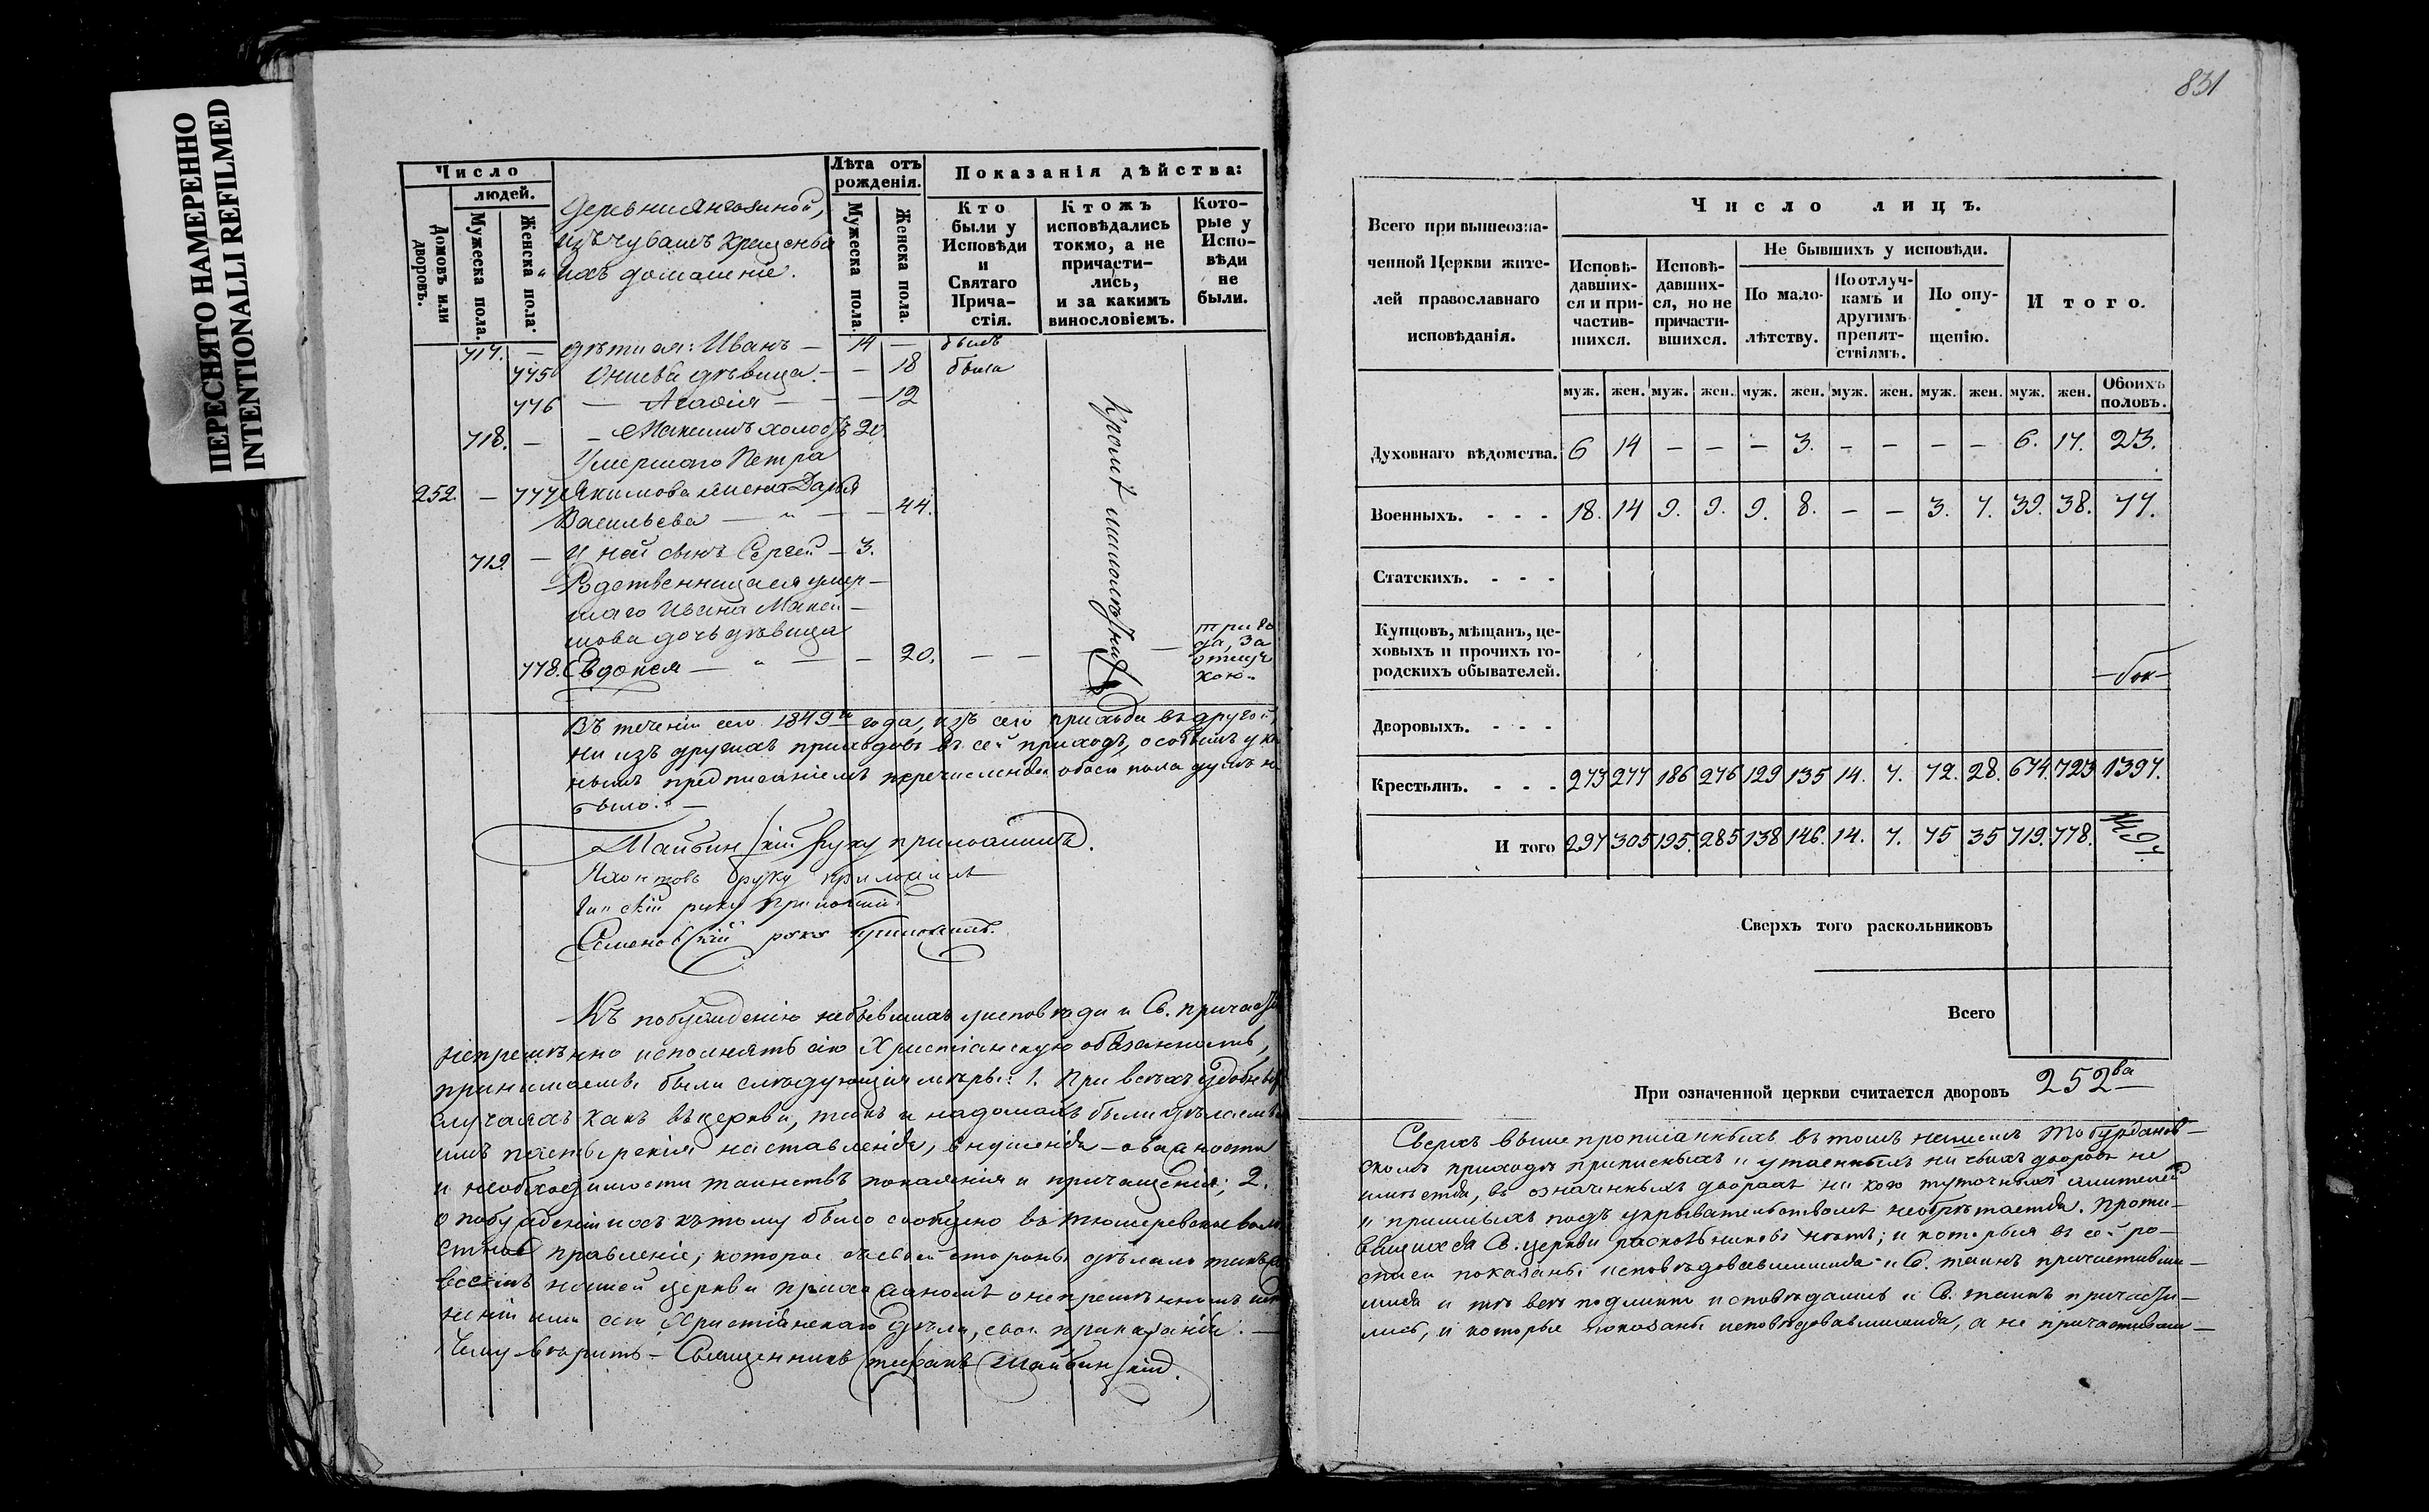 ПЕРЕСНЯТО НАМЕРЕННО
INTENTIONALLI REFILMED
831
Число
людей.
Домовъ или дворовъ.
Мужеска пола.
Женска пола.
Деревни
изъ чувашъ крещены
ихъ домашніе.
Лѣта отъ рожденія.
Мужеска пола.
Женска пола.
Показанія дѣйства:
Кто были у Исповѣди и Святаго Причастія.
Ктожъ исповѣдались токмо, а не причастились, и за какимъ винословіемъ.
Которые у Исповѣди не были.
717. — Иванъ — 14 — былъ
775 дѣвица — — 18 была
776 — — — 12
718. — — Максимъ холостъ 20.
Умершаго Петра
252. — 777 Якимова жена Дарья
Васильева — " — — 44.
719. — У ней сынъ Сергей — 3.
Родственница ея умер-
шаго Ивана Макси-
мова дочь дѣвица
778. Евдокея — " — — 20. — — —
три го
да, за
отлуч
кою.
Кромѣ
Въ теченіи сего 1849го года, изъ сего прихода въ другой,
ни изъ другихъ приходовъ въ сей приходъ, особымъ
нымъ предписаніемъ перечисленія обоего пола душъ не
было. —
руку приложилъ.
руку приложилъ
руку приложилъ
Семеновскій руку приложилъ.
Къ побужденію небывшихъ у исповѣди и Св. причастія
непремѣнно исполнять сію Христіанскую обязанность,
принимаемы были слѣдующія мѣры: 1. При всѣхъ удобныхъ
случаяхъ какъ въ церкви, такъ и на домахъ были дѣлаемы
имъ пастырскія наставленія, внушенія — о важности
и необходимости таинствъ покаянія и причащенія; 2.
о побужденіи ихъ къ тому было сообщено въ Тюмеревское во
правленіе, которое съ своей стороны дѣлало
всѣмъ нашей церкви прихожаномъ о непремѣнномъ
неніи ими сего Христіанскаго дѣла, свои приказанія. —
Чему вѣрить — Священникъ
Всего при вышеозна-
ченной Церкви жите-
лей православнаго
исповѣданія.
Число лицъ.
Исповѣ-давших-ся и при-частив-шихся.
Исповѣ-давших-ся, но не причасти-вшихся.
Не бывшихъ у исповѣди.
По мало-лѣтству.
По отлуч-камъ и другимъ препят-ствіямъ.
По опу-щенію.
Итого.
муж. жен. муж. жен. муж. жен. муж. жен. муж. жен. муж. жен. Обоихъ половъ.
Духовнаго вѣдомства. 6 14 — — — 3. — — — — 6. 17. 23.
Военныхъ. - - - 18. 14 9. 9. 9. 8. — — 3. 7. 39. 38. 77.
Статскихъ. - - -
Купцовъ, мѣщанъ, це-
ховыхъ и прочихъ го-
родскихъ обывателей.
Дворовыхъ. - - -
Крестьянъ. - - - 273 277 186 276 129 135 14. 7. 72. 28. 674. 723 1397.
И того 297 305 195. 285 138 146. 14. 7. 75 35 719. 778. 1497.
Сверхъ того раскольниковъ
Всего
При означенной церкви считается дворовъ 252ва
Сверхъ вышепрописанныхъ въ томъ нашемъ Тобурданов-
скомъ приходѣ приписныхъ и утаенныхъ ни чьихъ дворовъ не
имѣется, въ означенныхъ дворахъ ни кого туточныхъ жителей
и пришлыхъ подъ укрывательствомъ необрѣтается. Проти-
вящихся Св. церкви раскольниковъ нѣтъ; и которыя въ сей ро-
списи показаны исповѣдовавшимися и Св. таинъ причастивши-
мися и тѣ всѣ подлинно исповѣдались и Св. таинъ причасти-
лись, и которые показаны исповѣдовавшимися, а не причастивши-